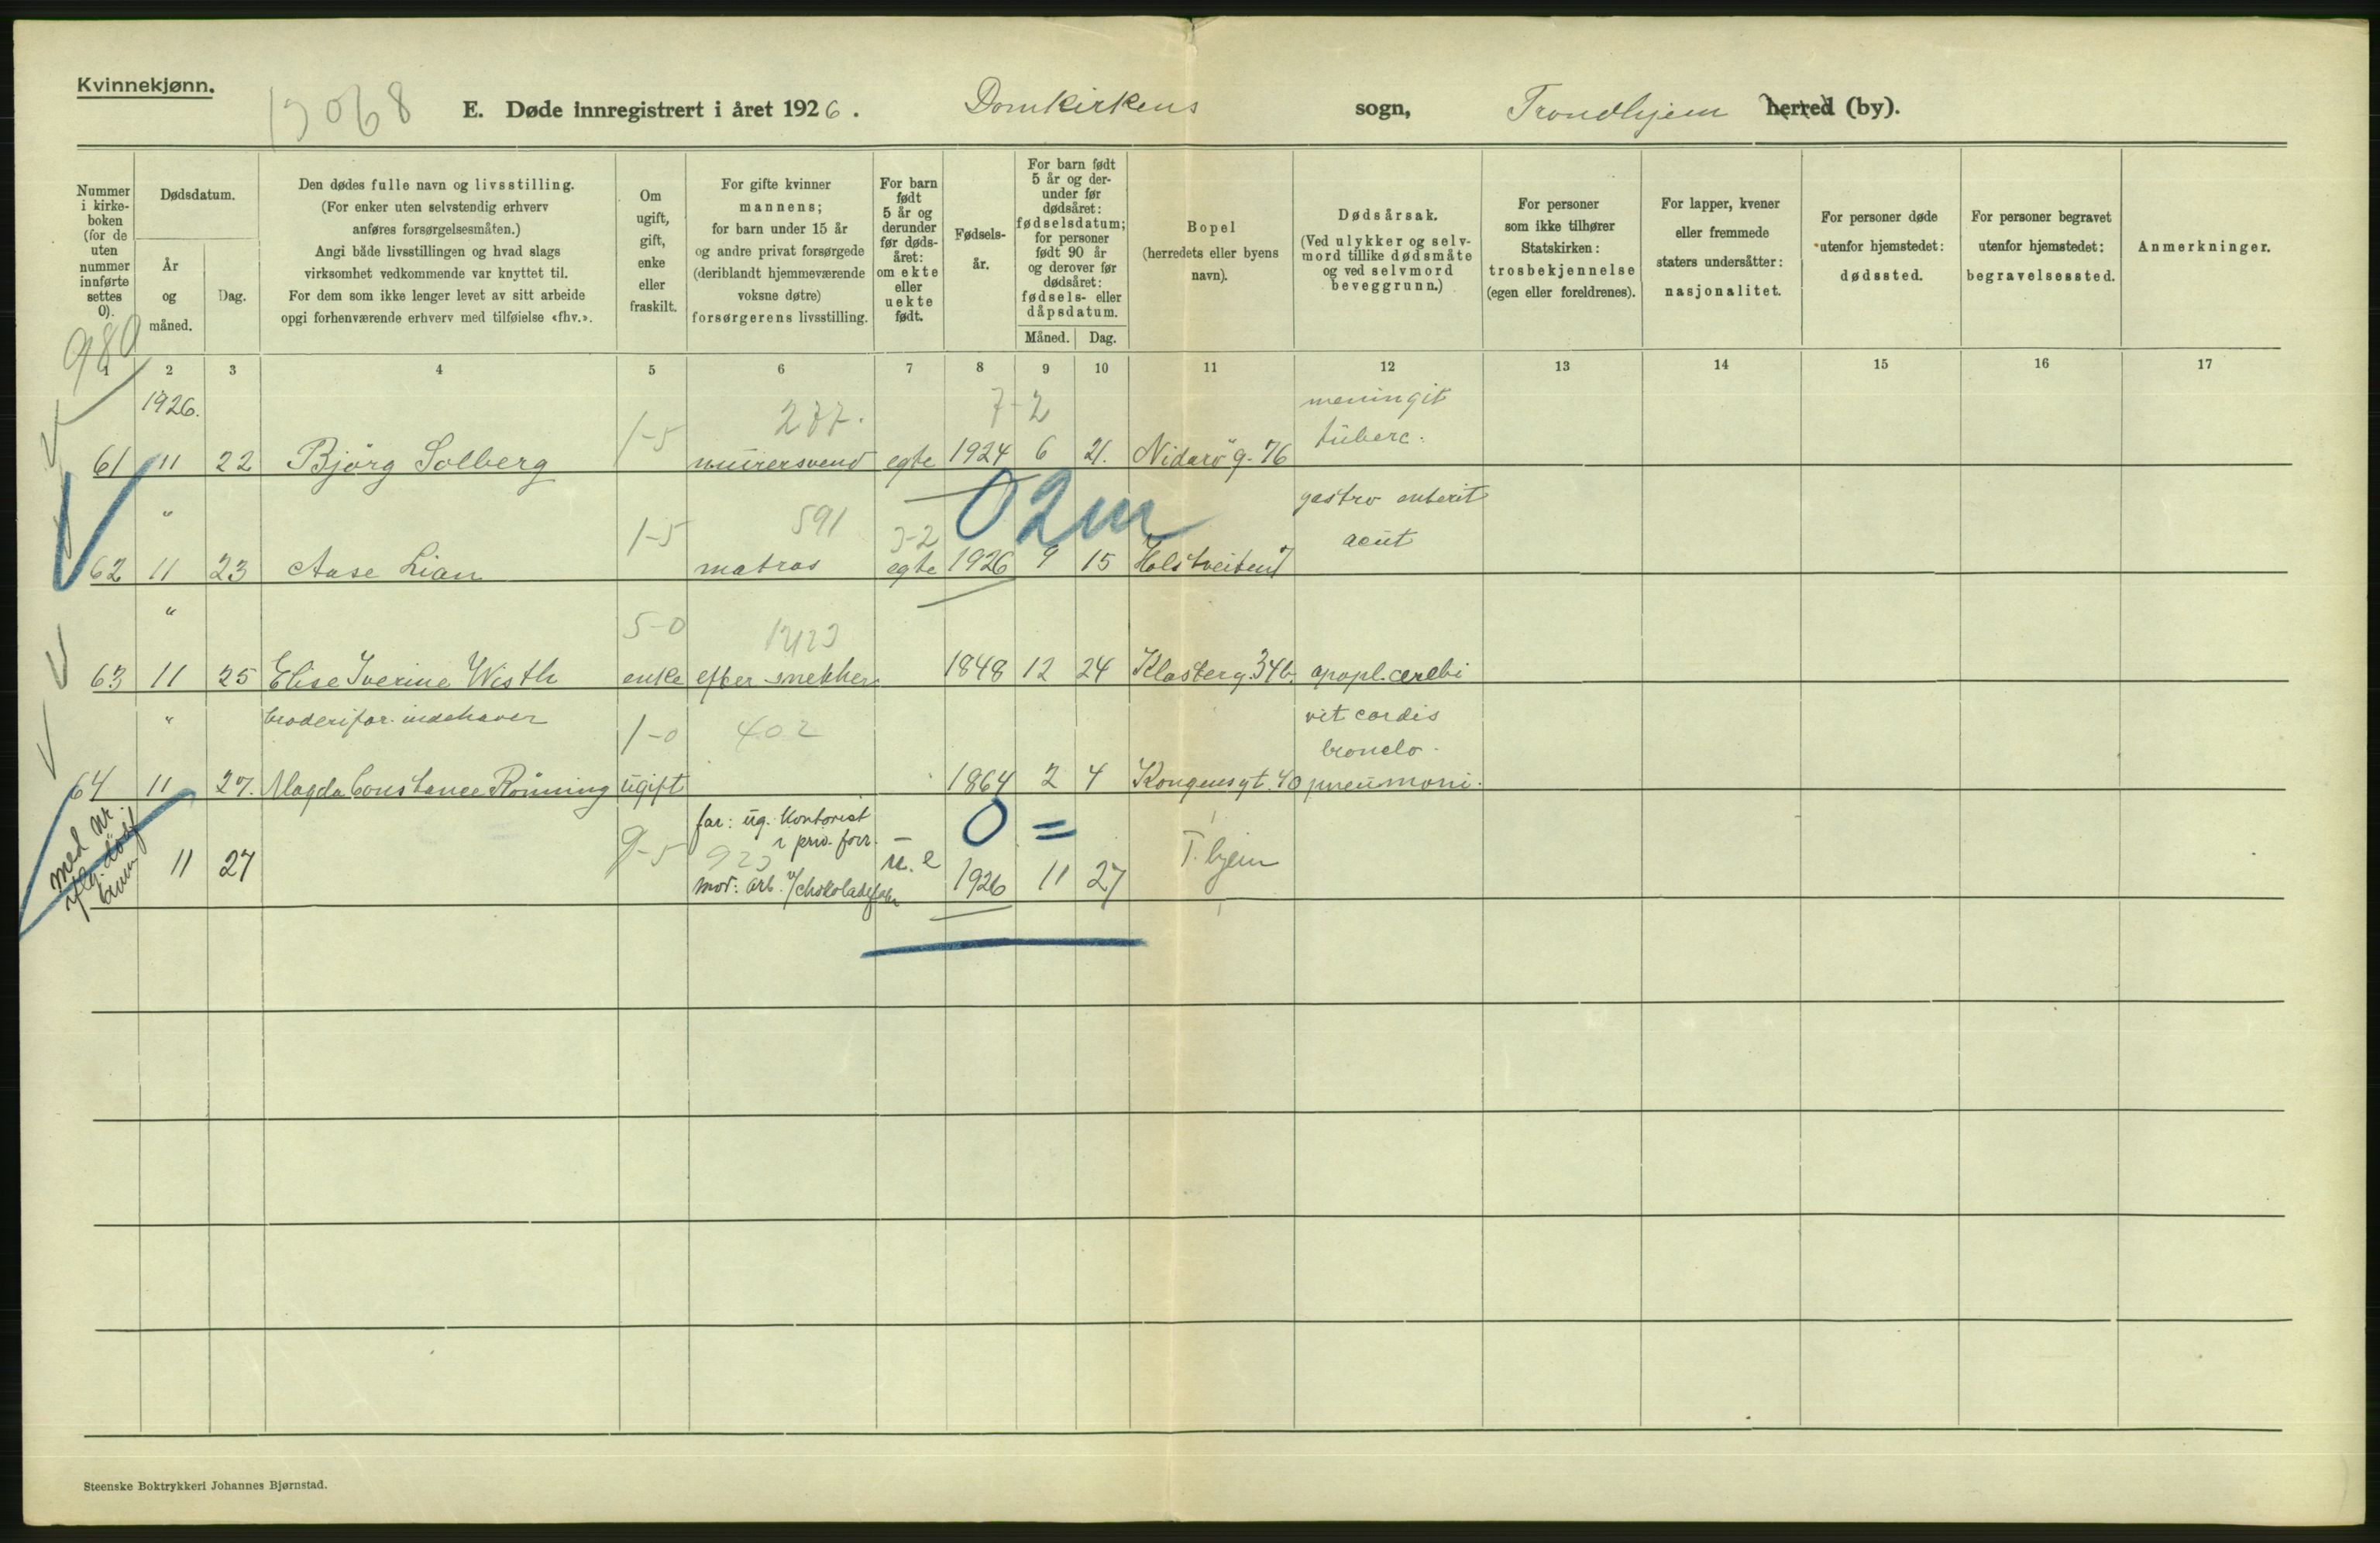 Kvinnekjønn.
E. Døde innregistrert i året 1926. Domkirkens sogn, Trondhjem herred (by).
Nummer i kirke-boken (for de uten nummer innførte settes 0).
Dødsdatum.
År og måned.
Dag.
Den dødes fulle navn og livsstilling.
(For enker uten selvstendig erhverv
anføres forsørgelsesmåten.)
Angi både livsstillingen og hvad slags
virksomhet vedkommende var knyttet til.
For dem som ikke lenger levet av sitt arbeide
opgi forhenværende erhverv med tilføielse «fhv.».
Om
ugift,
gift,
enke
eller
fraskilt.
For gifte kvinner
mannens;
for barn under 15 år
og andre privat forsørgede
(deriblandt hjemmeværende
voksne døtre)
forsørgerens livsstilling.
For barn
født
5 år og
derunder
før døds-
året:
om ekte
eller
uekte
født.
Fødsels-
år.
For barn født
5 år og der-
under før
dødsåret:
fødselsdatum;
for personer
født 90 år
og derover før
dødsåret:
fødsels- eller
dåpsdatum.
Måned. Dag.
Bopel
(herredets eller byens
navn).
Dødsårsak.
(Ved ulykker og selv-
mord tillike dødsmåte
og ved selvmord
beveggrunn.)
For personer
som ikke tilhører
Statskirken:
trosbekjennelse
(egen eller foreldrenes).
For lapper, kvener
eller fremmede
staters undersåtter:
nasjonalitet.
For personer døde
utenfor hjemstedet:
dødssted.
For personer begravet
utenfor hjemstedet:
begravelsessted.
Anmerkninger.
980
1 2 3 4 5 6 7 8 9 10 11 12 13 14 15 16 17
1926. 277. 7-2 meningit
1-5 tuberc.
61 11 22 Bjørg Solberg murersvend egte 1924 6 21. Nidarö g. 76
02m gastro enterit
" 1-5 591 3-2 acut
62 11 23 Aase Lian matros egte 1926 9 15 Holstveiten 7
" 5-0
63 11 25 Elise Iverine Wisth enke efter snekker 1848 12 24 Klosterg. 34b. apopl. cerebi
" broderifor. indehaver 1-0 402 vit cordis
broncho-
64 11 27. Magda Constance Rönning ugift 1864 2 4 Kongensgt. 40 pneumoni.
far: ug. Kontorist 0 =
i priv. forr.
11 27 9-5 923 u. e 1926 11 27 T.hjem
mor: arb. v/chokoladefabr
Steenske Boktrykkeri Johannes Bjørnstad.